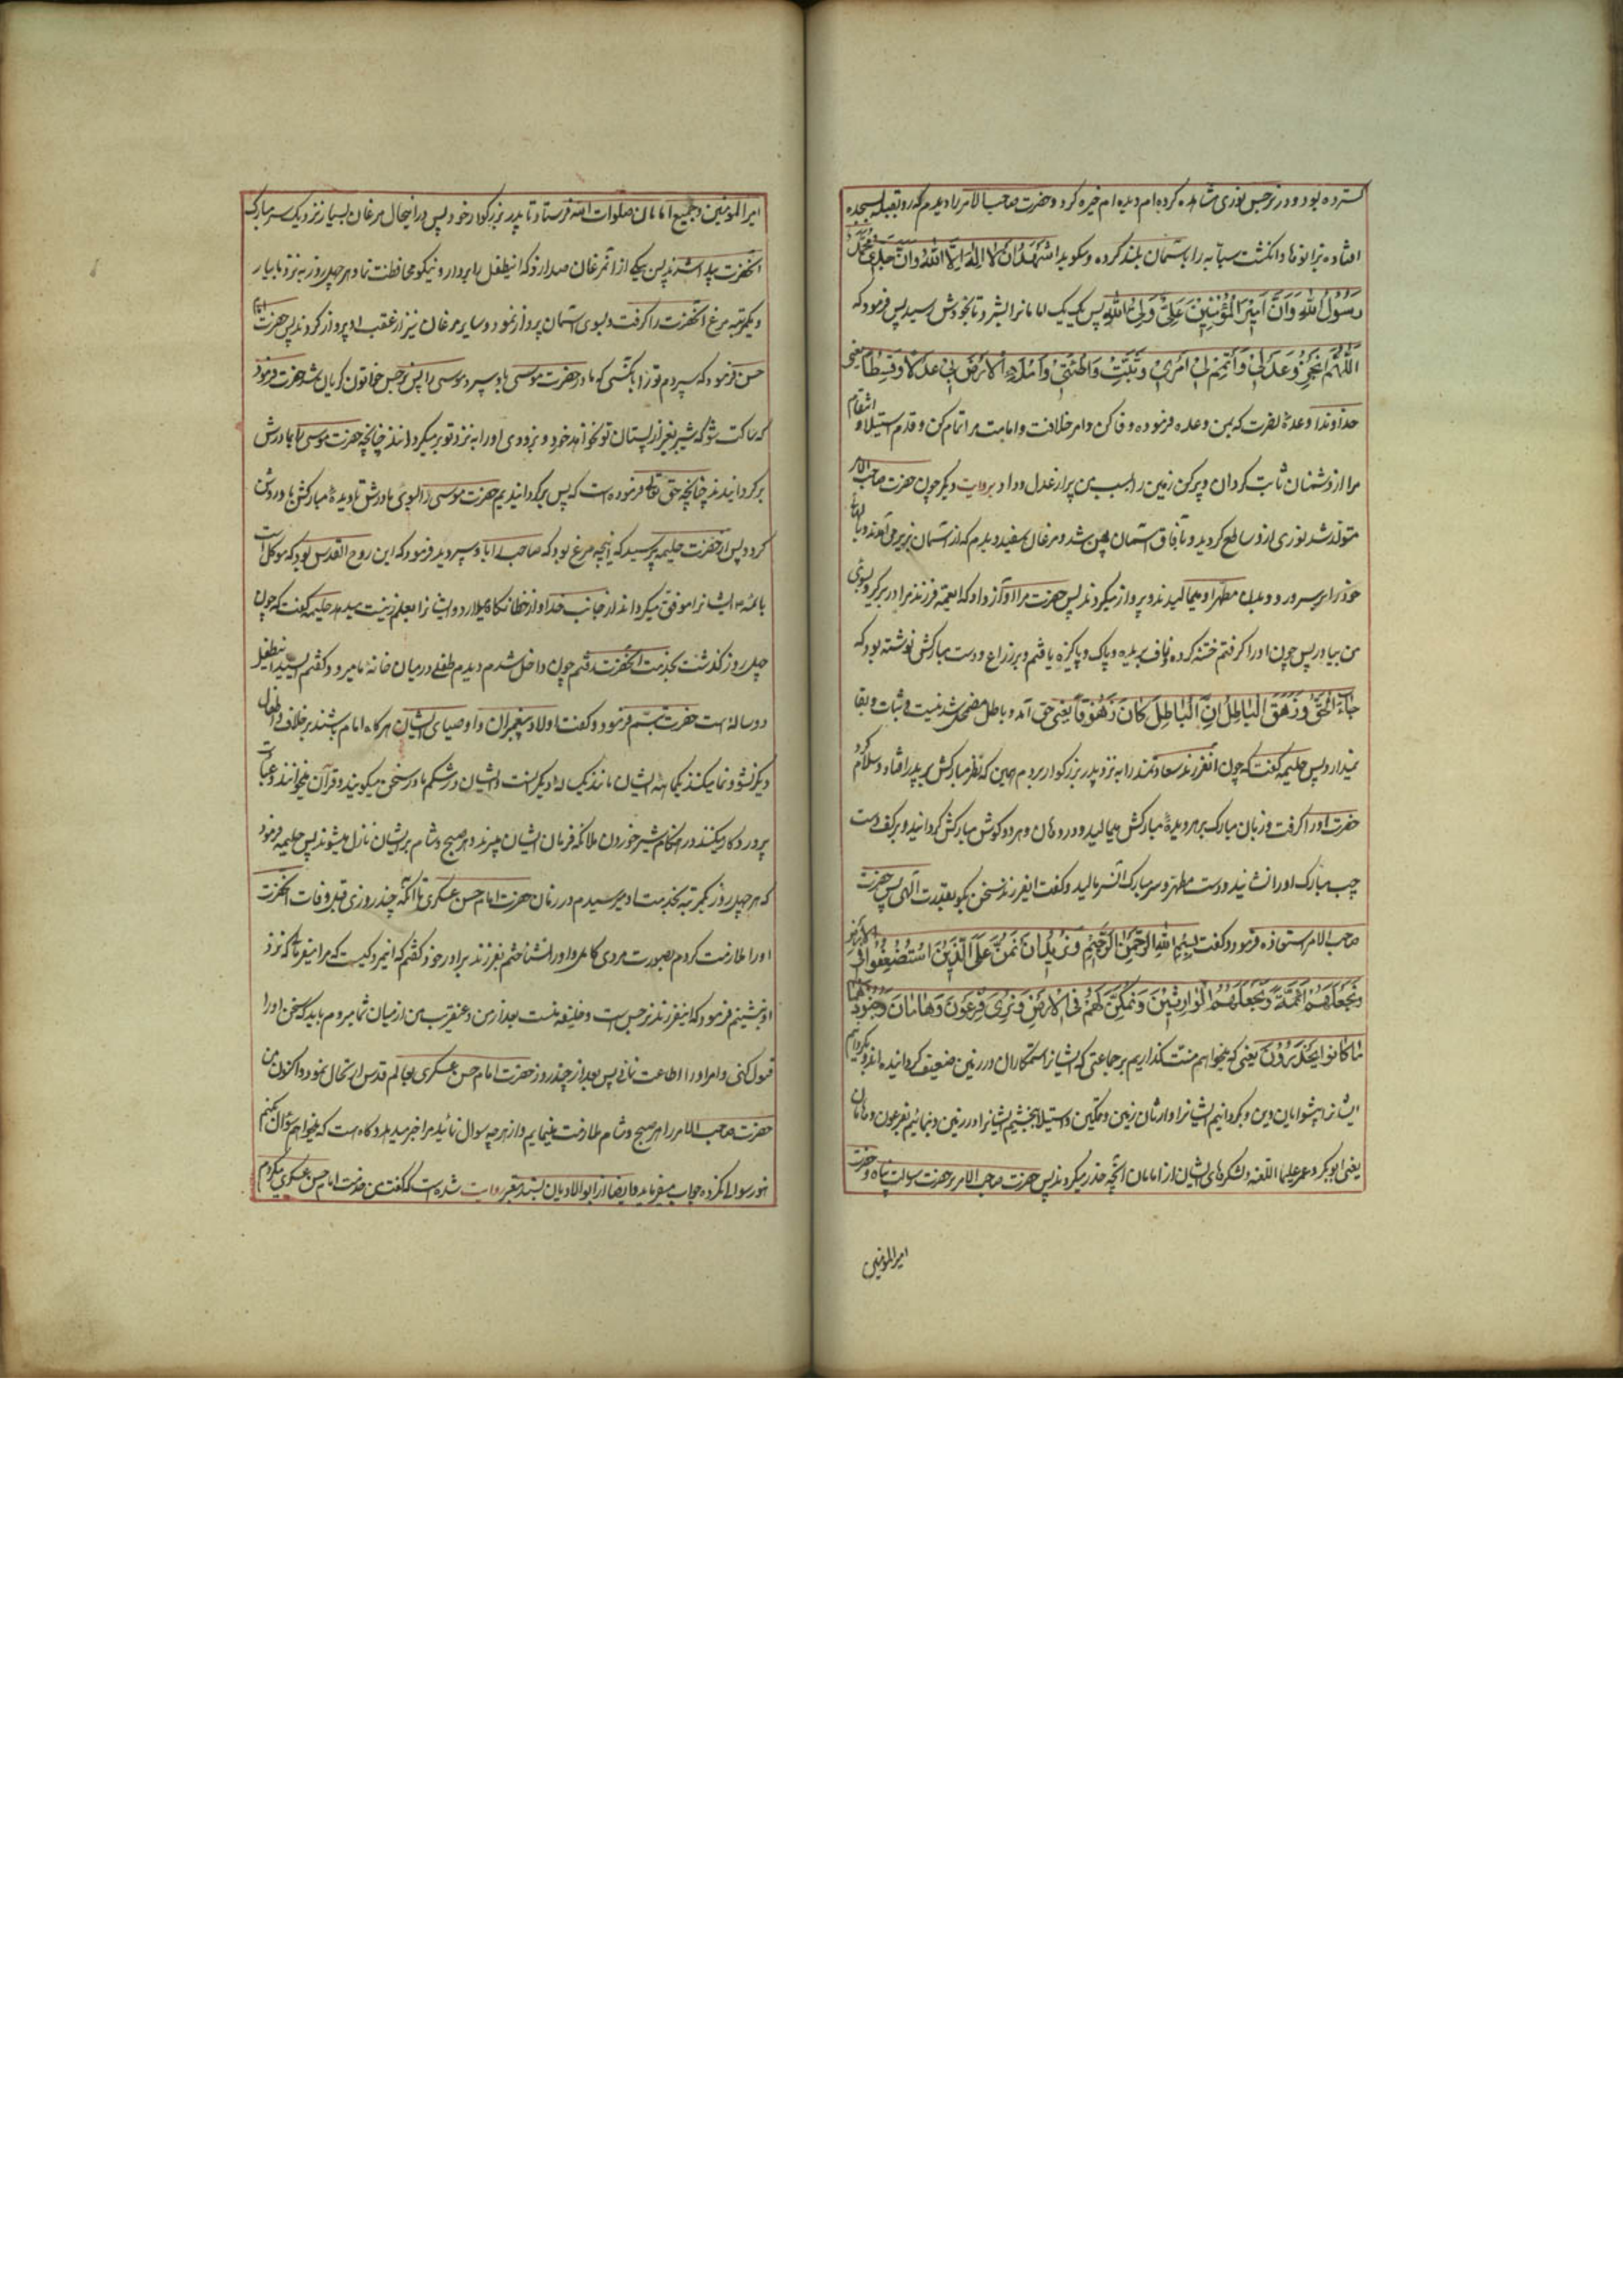 کسترده بود و در نرجس نوری مشاهده کردم که دیده ام خیره کرد و حضرت صاحب الامر را دیدم که رو بقبله بسجده
افتاده بزانوها و انکشت سبابه را بآسمان بلند کرده و میکوید اشهد ان لا اله الا الله و ان جدی محمد
رَسُولُ اللهِ وَاَنَّ اَمیرَ الْمُؤْمِنینَ عَلِیٌّ وَلِیُّ اللهِ پس یک یک امامانرا بشمرد تا بخودش رسید پس فرمود که
اَللّهُمَّ اَنْجِزْ لی وَعْدی وَاَتْمِمْ لی اَمْری وَثَبِّتْ وَطْئَتی وَامْلَاءِ الْاَرْضَ بی عَدْلًا وَقِسْطًا یعنی
خداوندا وعدهٔ نصرت که بمن وعده فرموده وفا کن و امر خلافت و امامت مرا تمام کن و قدم استیلا و انتقام
مرا از دشمنان ثابت کردان و پر کن زمین را بسبب من پر از عدل و داد بروایت دیکر چون حضرت صاحب الامر
متولد شد نوری ازو ساطع کردید و بآفاق آسمان پهن شد و مرغان سفید دیدم که از آسمان بزیر می آمدند و بالهای
خود را بر سر و رو و بدن مطهر او میمالیدند و پرواز میکردند پس حضرت مرا آواز داد که ایعمه فرزند مرا در بر کیر و بسوی
من بیاور پس چون او را کرفتم ختنه کرده و ناف بریده و پاک و پاکیزه یافتم و بر ذراع دست مبارکش نوشته بود که
جاءَ الْحَقُّ وَزَهَقَ الْباطِلُ اِنَّ الْباطِلَ کانَ زَهُوقًا یعنی حق آمد و باطل مضمحل شد نیست و ثبات و بقا
نیدارد پس حلیمه کفت که چون انفرزند سعادتمند را به نزد پدر بزرکوار بردم همین که نظر مبارکش بر پدر افتاد سلام کرد
حضرت او را کرفت و زبان مبارک بر هر دو دیدهٔ مبارکش میمالید و در دهان و هر دو کوش مبارکش کردانید و بر کف دست
چپ مبارک او را نشانید و دست مطهر و سر مبارک آنسر مالید و کفت ایفرزند سخن بکو بقدرت الهی پس حضرت
صاحب الامر استعاذه فرمود و کفت بِسْمِ اللهِ الرَّحْمنِ الرَّحیمِ وَنُریدُ اَنْ نَمُنَّ عَلَی الَّذینَ اسْتُضْعِفُوا فِی الْاَرْضِ
وَنَجْعَلَهُمْ اَئِمَّةً وَنَجْعَلَهُمُ الْوارِثینَ وَنُمَکِّنَ لَهُمْ فِی الْاَرْضِ وَنُرِیَ فِرْعَوْنَ وَهامانَ وَجُنُودَهُما
ما کانُوا یَحْذَرُونَ یعنی که میخواهم منت کذاریم بر جماعتی که ایشانرا ستمکاران در زمین ضعیف کردانیده اند و بکردانیم
ایشانرا پیشوایان دین و بکردانیم ایشانرا وارثان زمین و تمکین و استیلا بخشیم ایشانرا در زمین و بنمائیم بفرعون و هامان
یعنی ابوبکر و عمر علیهما اللعنه و لشکرهای ایشان از امامان آنچه حذر میکردند پس حضرت صاحب الامر بر حضرت رسالت پناه و حضرت
امیرالمؤمنین
امیر المؤمنین و جمیع امامان صلوات الله فرستاد تا پدر بزرکوار خود پس در انحال مرغان بسیار نزدیک سر مبارک
آنحضرت پیدا شدند پس یکی از آنمرغان صدا زد که اینطفل را بردار و نیکو محافظت نما و هر چهل روز به نزد ما بیار
و یکمرتبه مرغ آنحضرت را کرفت و بسوی آسمان پرواز نمود و سایر مرغان نیز از عقب او پرواز کردند پس حضرت امام
حسن فرمود که سپردم تو را بآنکسی که مادر حضرت موسی باو سپرد موسی را پس نرجس خاتون کریان شد حضرت فرمود
که ساکت شو که شیر بغیر از پستان تو نخواهد خورد و بزودی او را به نزد تو بر میکردانند چنانچه حضرت موسی را بمادرش
بر کردانیدند چنانچه حق تعالی فرموده است که پس بر کردانیدیم حضرت موسی را بسوی مادرش تا دیدهٔ مبارکش باو روشن
کردد پس از حضرت حلیمه پرسید که آنچه مرغ بود که صاحب را باو سپردید فرمود که این روح القدس بود که موکل است
بائمه ایشانرا موفق میکرداند از جانب خدا و از خطا نکاه میدارد و ایشانرا بعلم زینت میدهد حلیمه کفت که چون
چهل روز کذشت بخدمت آنحضرت رفتم چون داخل شدم دیدم طفلی در میان خانه راه میرود کفتم ای سید اینطفل
دو ساله است حضرت تبسم فرمود و کفت اولاد پیغمبران و اوصیای ایشان هر کاه امام باشند بر خلاف اطفال
دیکر نشو و نما میکنند یکماهه ایشان مانند یک ساله دیکرانست و ایشان در شکم مادر سخن میکویند و قرآن میخوانند و عبادت
پروردکار میکنند و در هنکام شیر خوردن ملائکه فرمان ایشان میبرند و هر صبح و شام بر ایشان نازل میشوند پس حلیمه فرمود
که هر چهل روز یکمرتبه بخدمت او میرسیدم در زمان حضرت امام حسن عسکری تا آنکه چند روزی قبل وفات آنحضرت
او را ملازمت کردم بصورت مردی کامل و او را نشناختم بفرزند برادر خود کفتم که اینمرد کیست که مرا میفرمائی که نزد
او بنشینم فرمود که اینفرزند نرجس است و خلیفه منست بعد از من و عنقریب من از میان شما میروم باید که سخن او را
قبول کنی و امر او را اطاعت نمائی پس بعد از چند روز حضرت امام حسن عسکری بعالم قدس ارتحال نمود و اکنون من
حضرت صاحب الامر را هر صبح و شام ملازمت مینمایم و از هر چه سوال نمایند مرا خبر میدهد و کاه است که میخواهم سؤالی بکنم
هنوز سوال نکرده جواب میفرماید و ایضا از ابو الادیان بسند معتبر روایت شده است که کفت من خدمت امام حسن عسکری میکردم